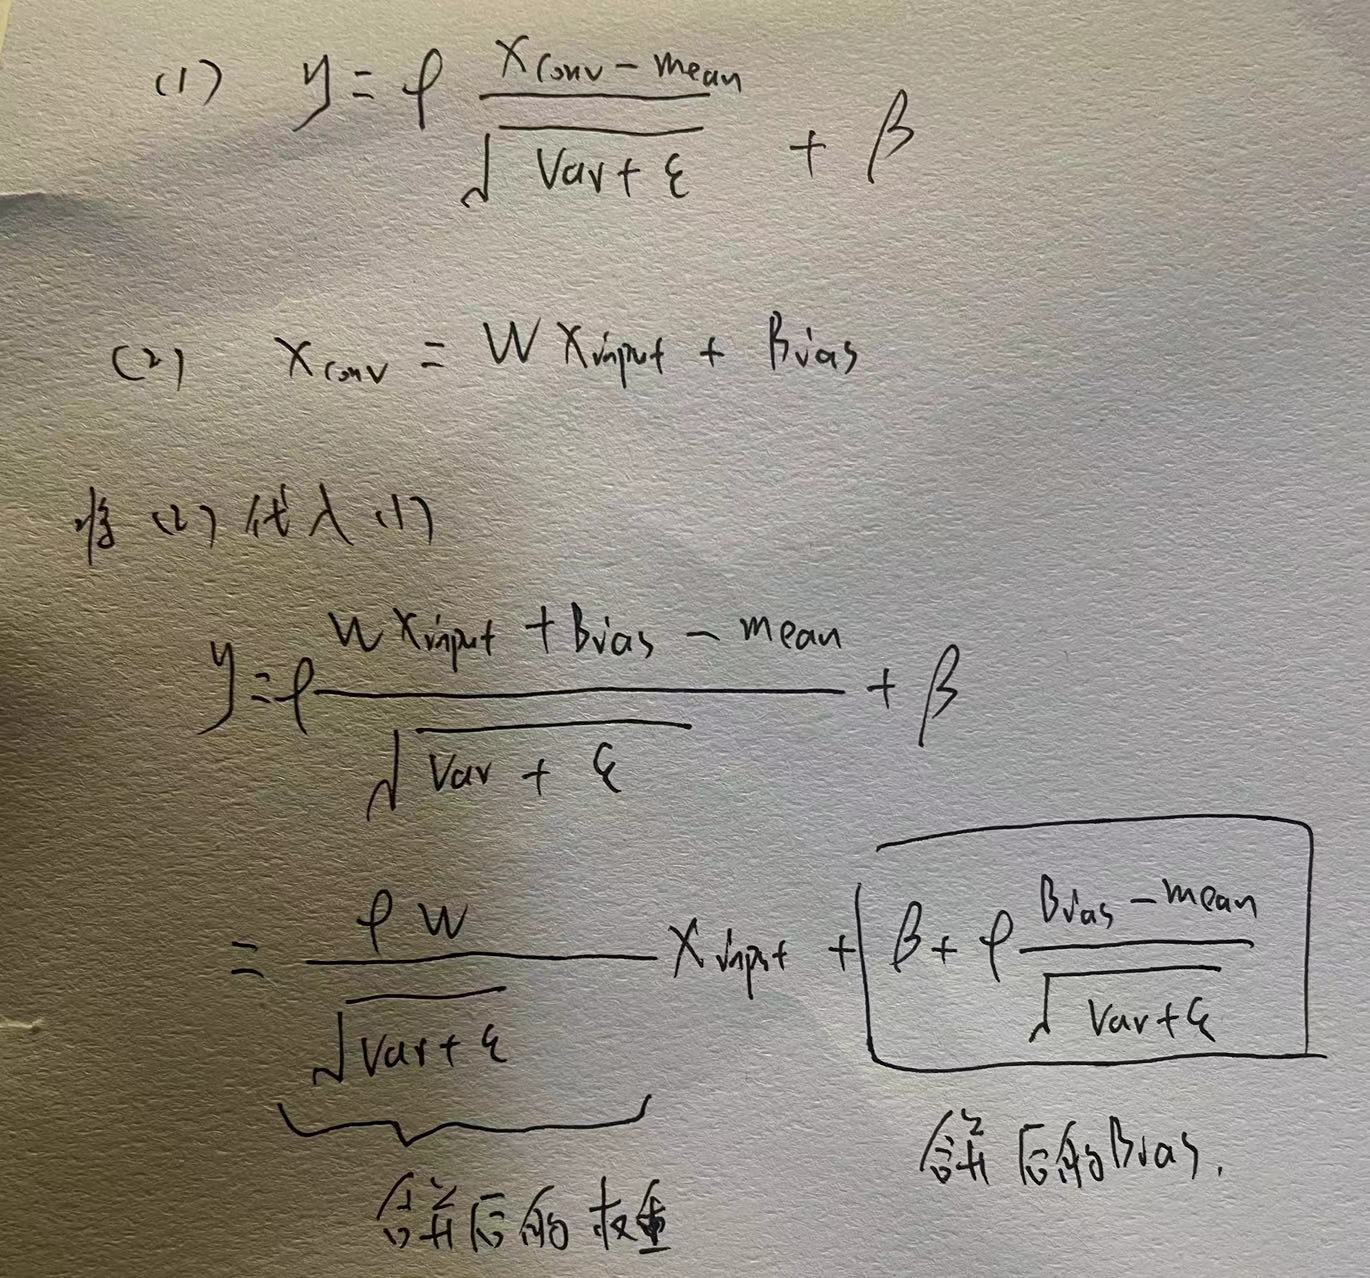 (1) y = φ (x_conv - mean) / √(Var + ε) + β
(2) x_conv = W x_input + Bias
将 (2) 代入 (1)
y = φ (W x_input + Bias - mean) / √(Var + ε) + β
= φ W / √(Var + ε) x_input + β + φ (Bias - mean) / √(Var + ε)
合并后的权重 合并后的Bias.